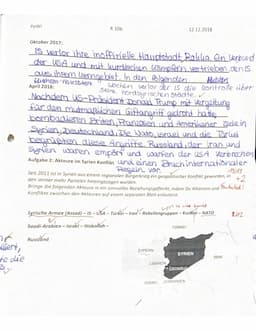 PoWi
R 10b
12.12.2018
Oktober 2017:
IS verlor ihre inoffizielle Hauptstadt, Rakka. Ein Verbund
der USA und mit kurdischen Kämpfern vertrieben den IS
aus ihrem Herrngebiet. In den folgenden
Wochen verlor der IS die Kontrolle über
April 2018:
seine nordsyrischen Städte.
Nachdem US-Präsident Donald Trump mit Vergeltung
für den mutmaßlichen Giftangriff gedroht hatte,
bombadierten Briten, Franzosen und Amerikaner Ziele in
Syrien. Deutschland, Die Nato, Israel und die Türkei
begrüßten diese Angriffe. Russland, der Iran und
Syrien waren empört und warfen der USA Verbrechen
und einen Bruch internationaler
Regeln vor.
Aufgabe 2: Akteure im Syrien Konflikt
Seit 2011 ist in Syrien aus einem regionalen Bürgerkrieg ein geopolitischer Konflikt geworden, in
den immer mehr Parteien hineingezogen wurden.
Bringe die folgenden Akteure in ein sinnvolles Beziehungsgeflecht, indem Du Allianzen und
Konflikte zwischen den Akteuren auf einem separaten Blatt einbaust.
Syrische Armee (Assad) – IS – USA – Türkei – Iran – Rebellengruppen – Kurden – NATO
Saudi-Arabien – Israel – Hisbollah –
Russland
SYRIEN